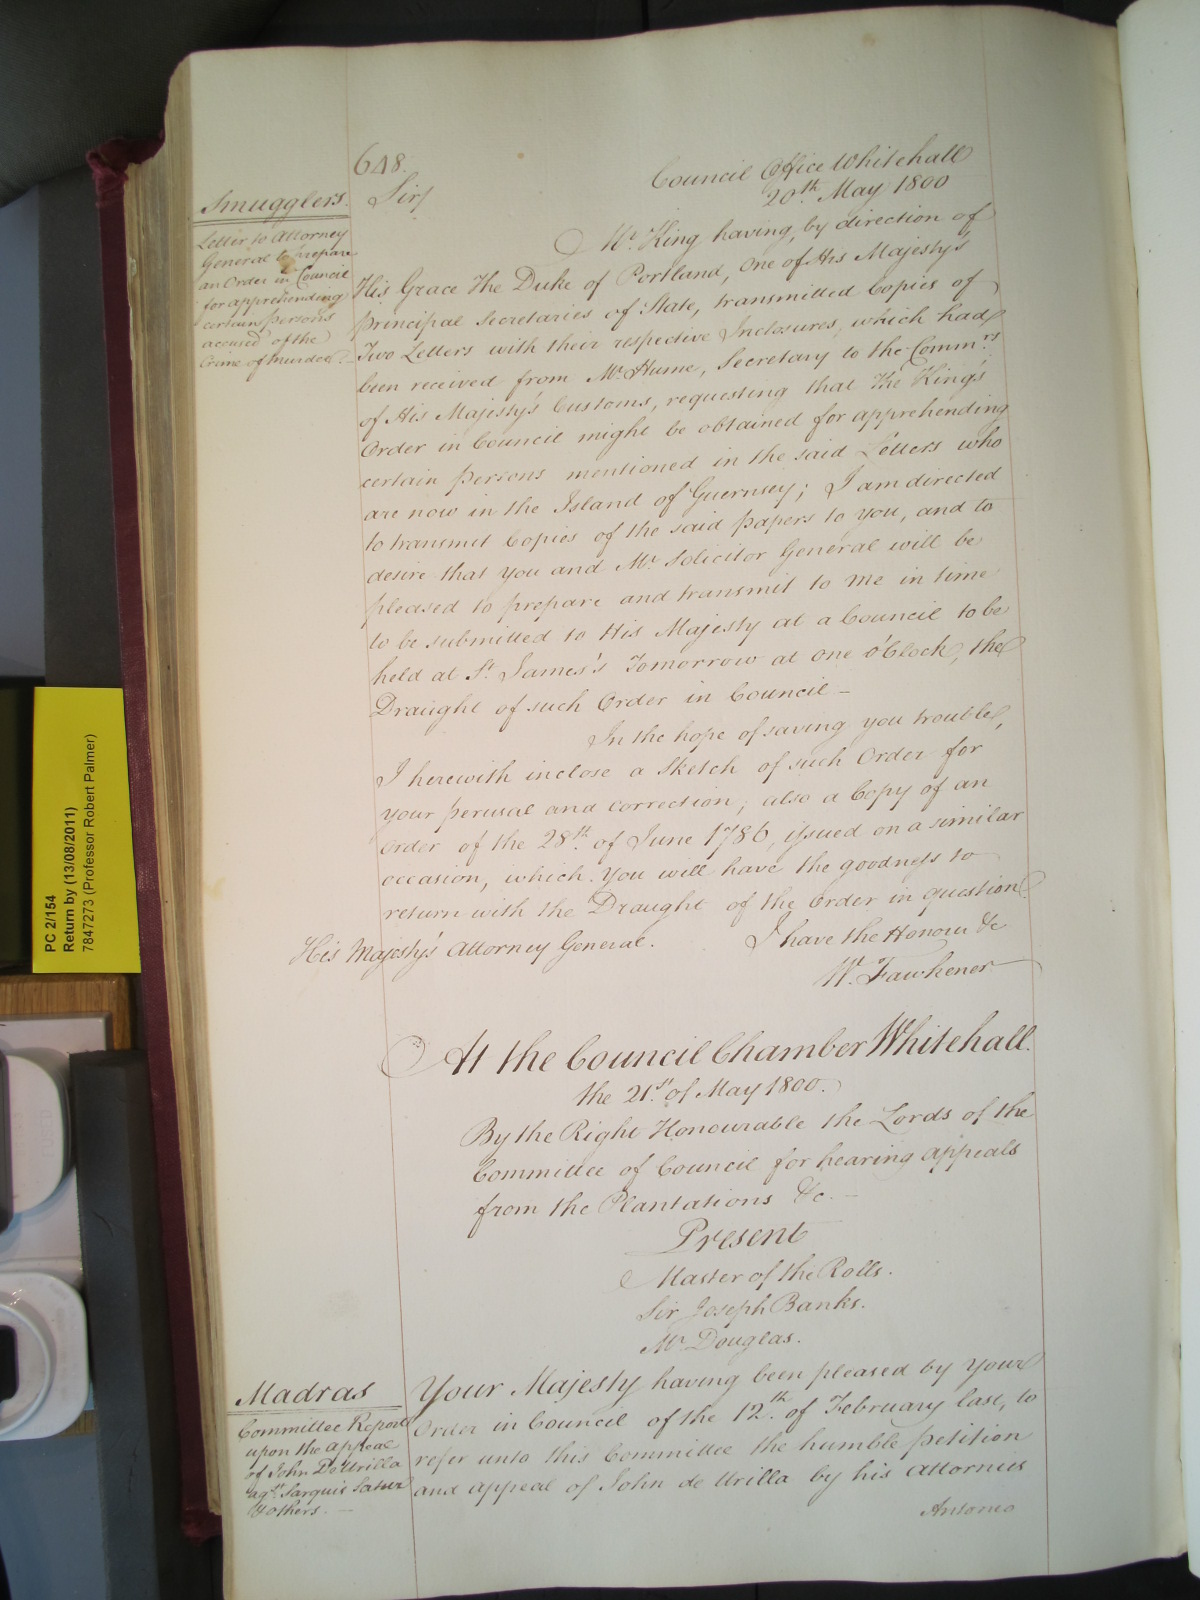 648.
Council Office Whitehall
20th. May 1800
Smugglers.
Letter to Attorney
General to prepare
an Order in Council
for apprehending
certain persons
accused of the
Crime of Murder.
Sir/
Mr. King having, by direction of
His Grace The Duke of Portland, one of His Majesty's
principal Secretaries of State, transmitted Copies of
Two Letters with their respective Inclosures, which had
been received from Mr. Hume, Secretary to the Commrs.
of His Majesty's Customs, requesting that The King's
Order in Council might be obtained for apprehending
certain persons mentioned in the said Letters who
are now in the Island of Guernsey; I am directed
to transmit Copies of the said papers to you, and to
desire that you and Mr. Solicitor General will be
pleased to prepare and transmit to me in time
to be submitted to His Majesty at a Council to be
held at St. James's Tomorrow at one o'Clock, the
Draught of such Order in Council —
In the hope of saving you trouble,
I herewith inclose a Sketch of such Order for
your perusal and correction; also a Copy of an
Order of the 28th. of June 1786, issued on a similar
occasion, which you will have the goodness to
return with the Draught of the Order in question.
I have the Honour &c
His Majesty's Attorney General.
W. Fawkener
At the Council Chamber Whitehall.
the 21st. of May 1800.
By the Right Honourable the Lords of the
Committee of Council for hearing appeals
from the Plantations &c. —
Present
Master of the Rolls.
Sir Joseph Banks.
Mr. Douglas.
Madras
Committee Report
upon the appeal
of John De Urilla
agt. Sarquis Satur
& others. —
Your Majesty having been pleased by Your
Order in Council of the 12th. of February last, to
refer unto this Committee the humble petition
and appeal of John de Urilla by his Attornies
Antonio
PC 2/154
Return by (13/08/2011)
7847273 (Professor Robert Palmer)